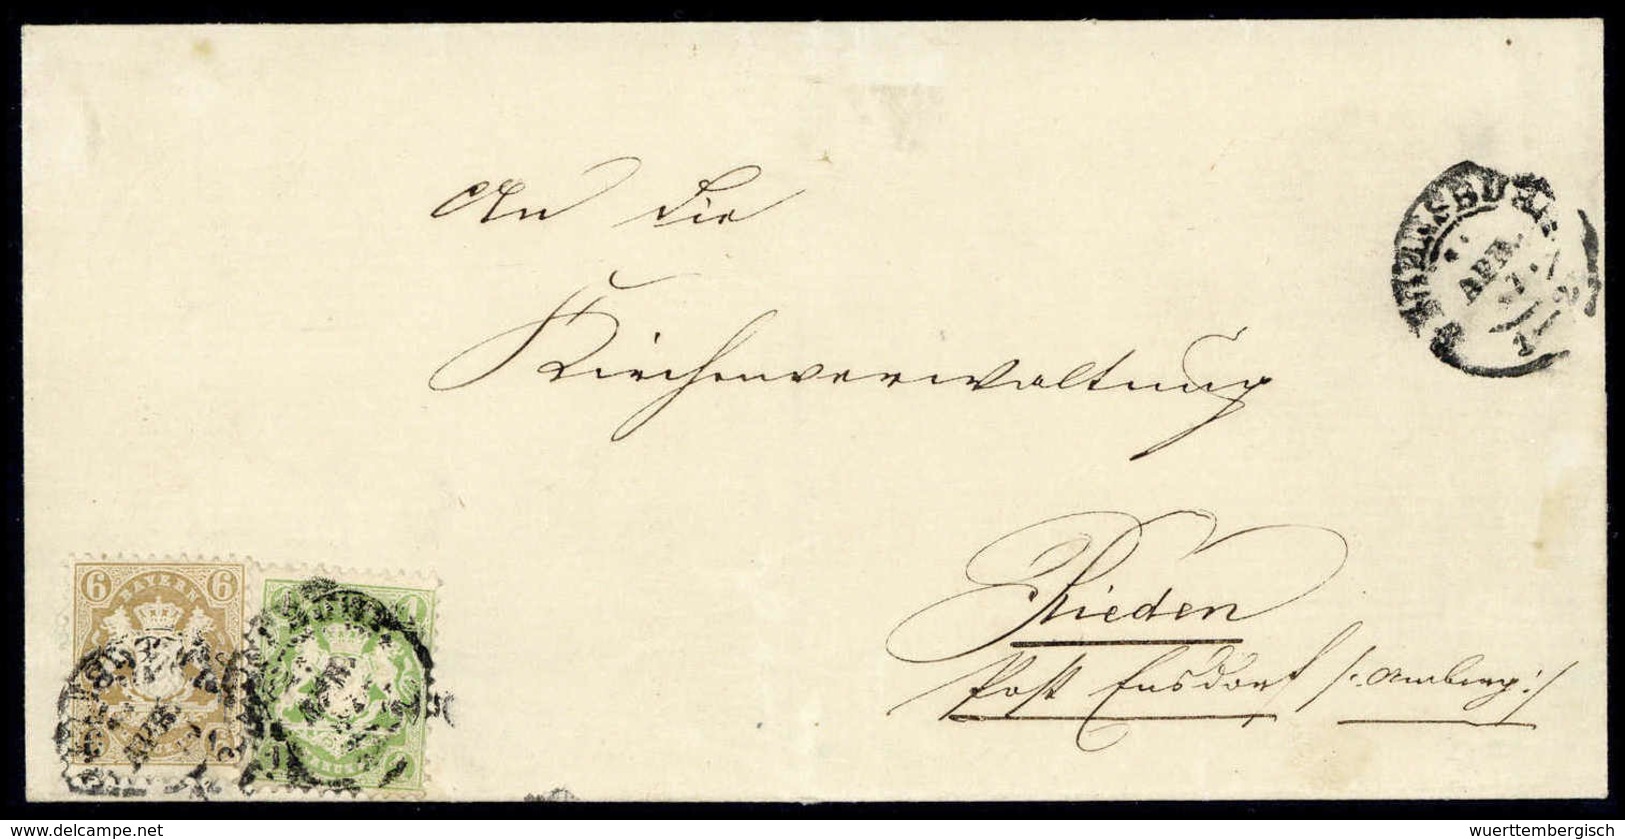 An die
Kirchenverwaltung
Rieden
Post Ensdorf /: Amberg :/
REGENSBURG
APR.
7
6 6
BAYERN
1
www.delcampe.net
wuerttembergisch